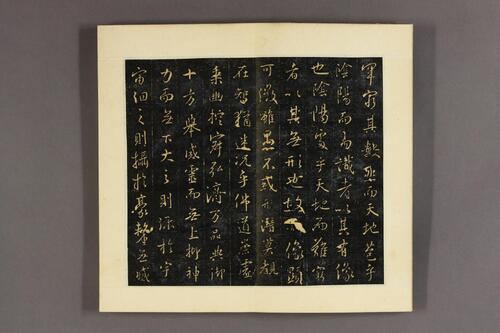 罕窮其數然而天地苞乎
陰陽而易識者以其有像
也陰陽處乎天地而難窮
者以其無形也故像顯
可徵雖愚不惑形潛莫覩
在智猶迷況乎佛道崇虛
乘幽控寂弘濟万品典御
十方舉威靈而無上抑神
力而無下大之則弥於宇
宙細之則攝於豪釐無滅